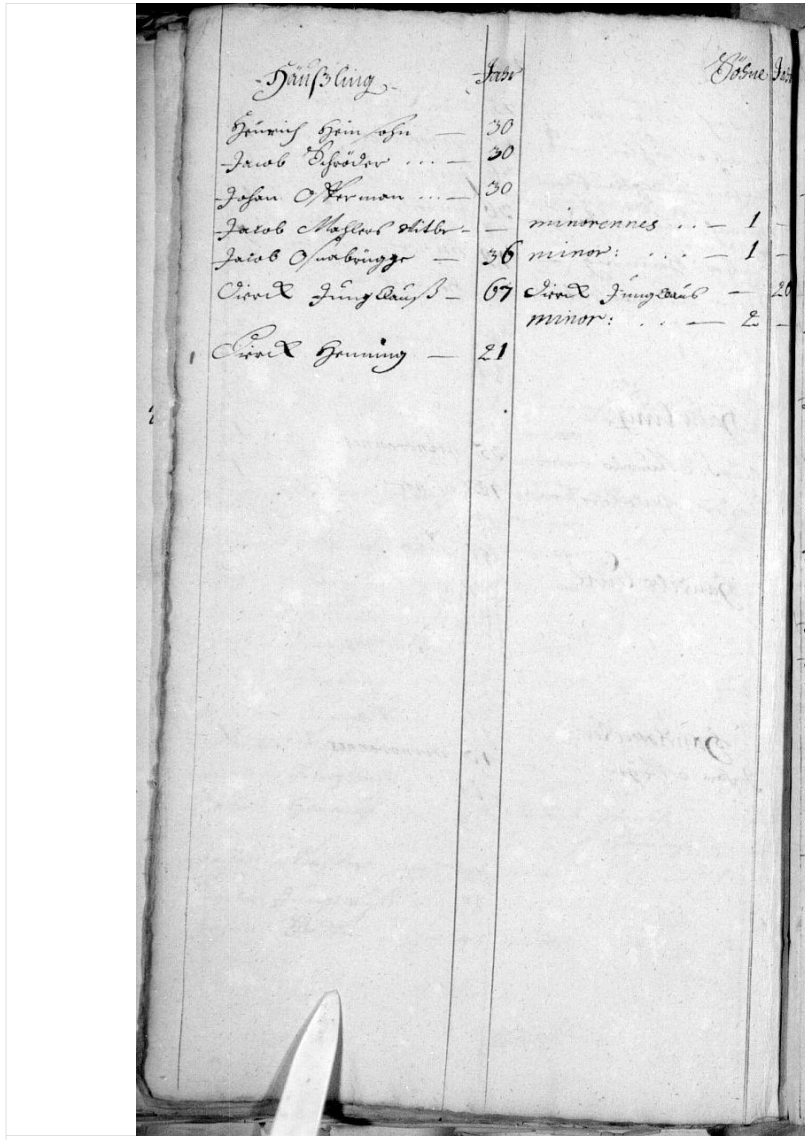 Häußling Jahr Söhne Jahr
Hinrich Heinsohn — 30
Jacob Schröder ... — 30
Johan Osterman ... — 30
Jacob Mahlers Witbe - — minorennes .. — 1 -
Jacob Osnabrügge — 36 minor: . . . — 1 -
Dierck Junglauß — 67 Dierck Junglaus — 20
minor: . . — 2 -
Dierck Henning — 21